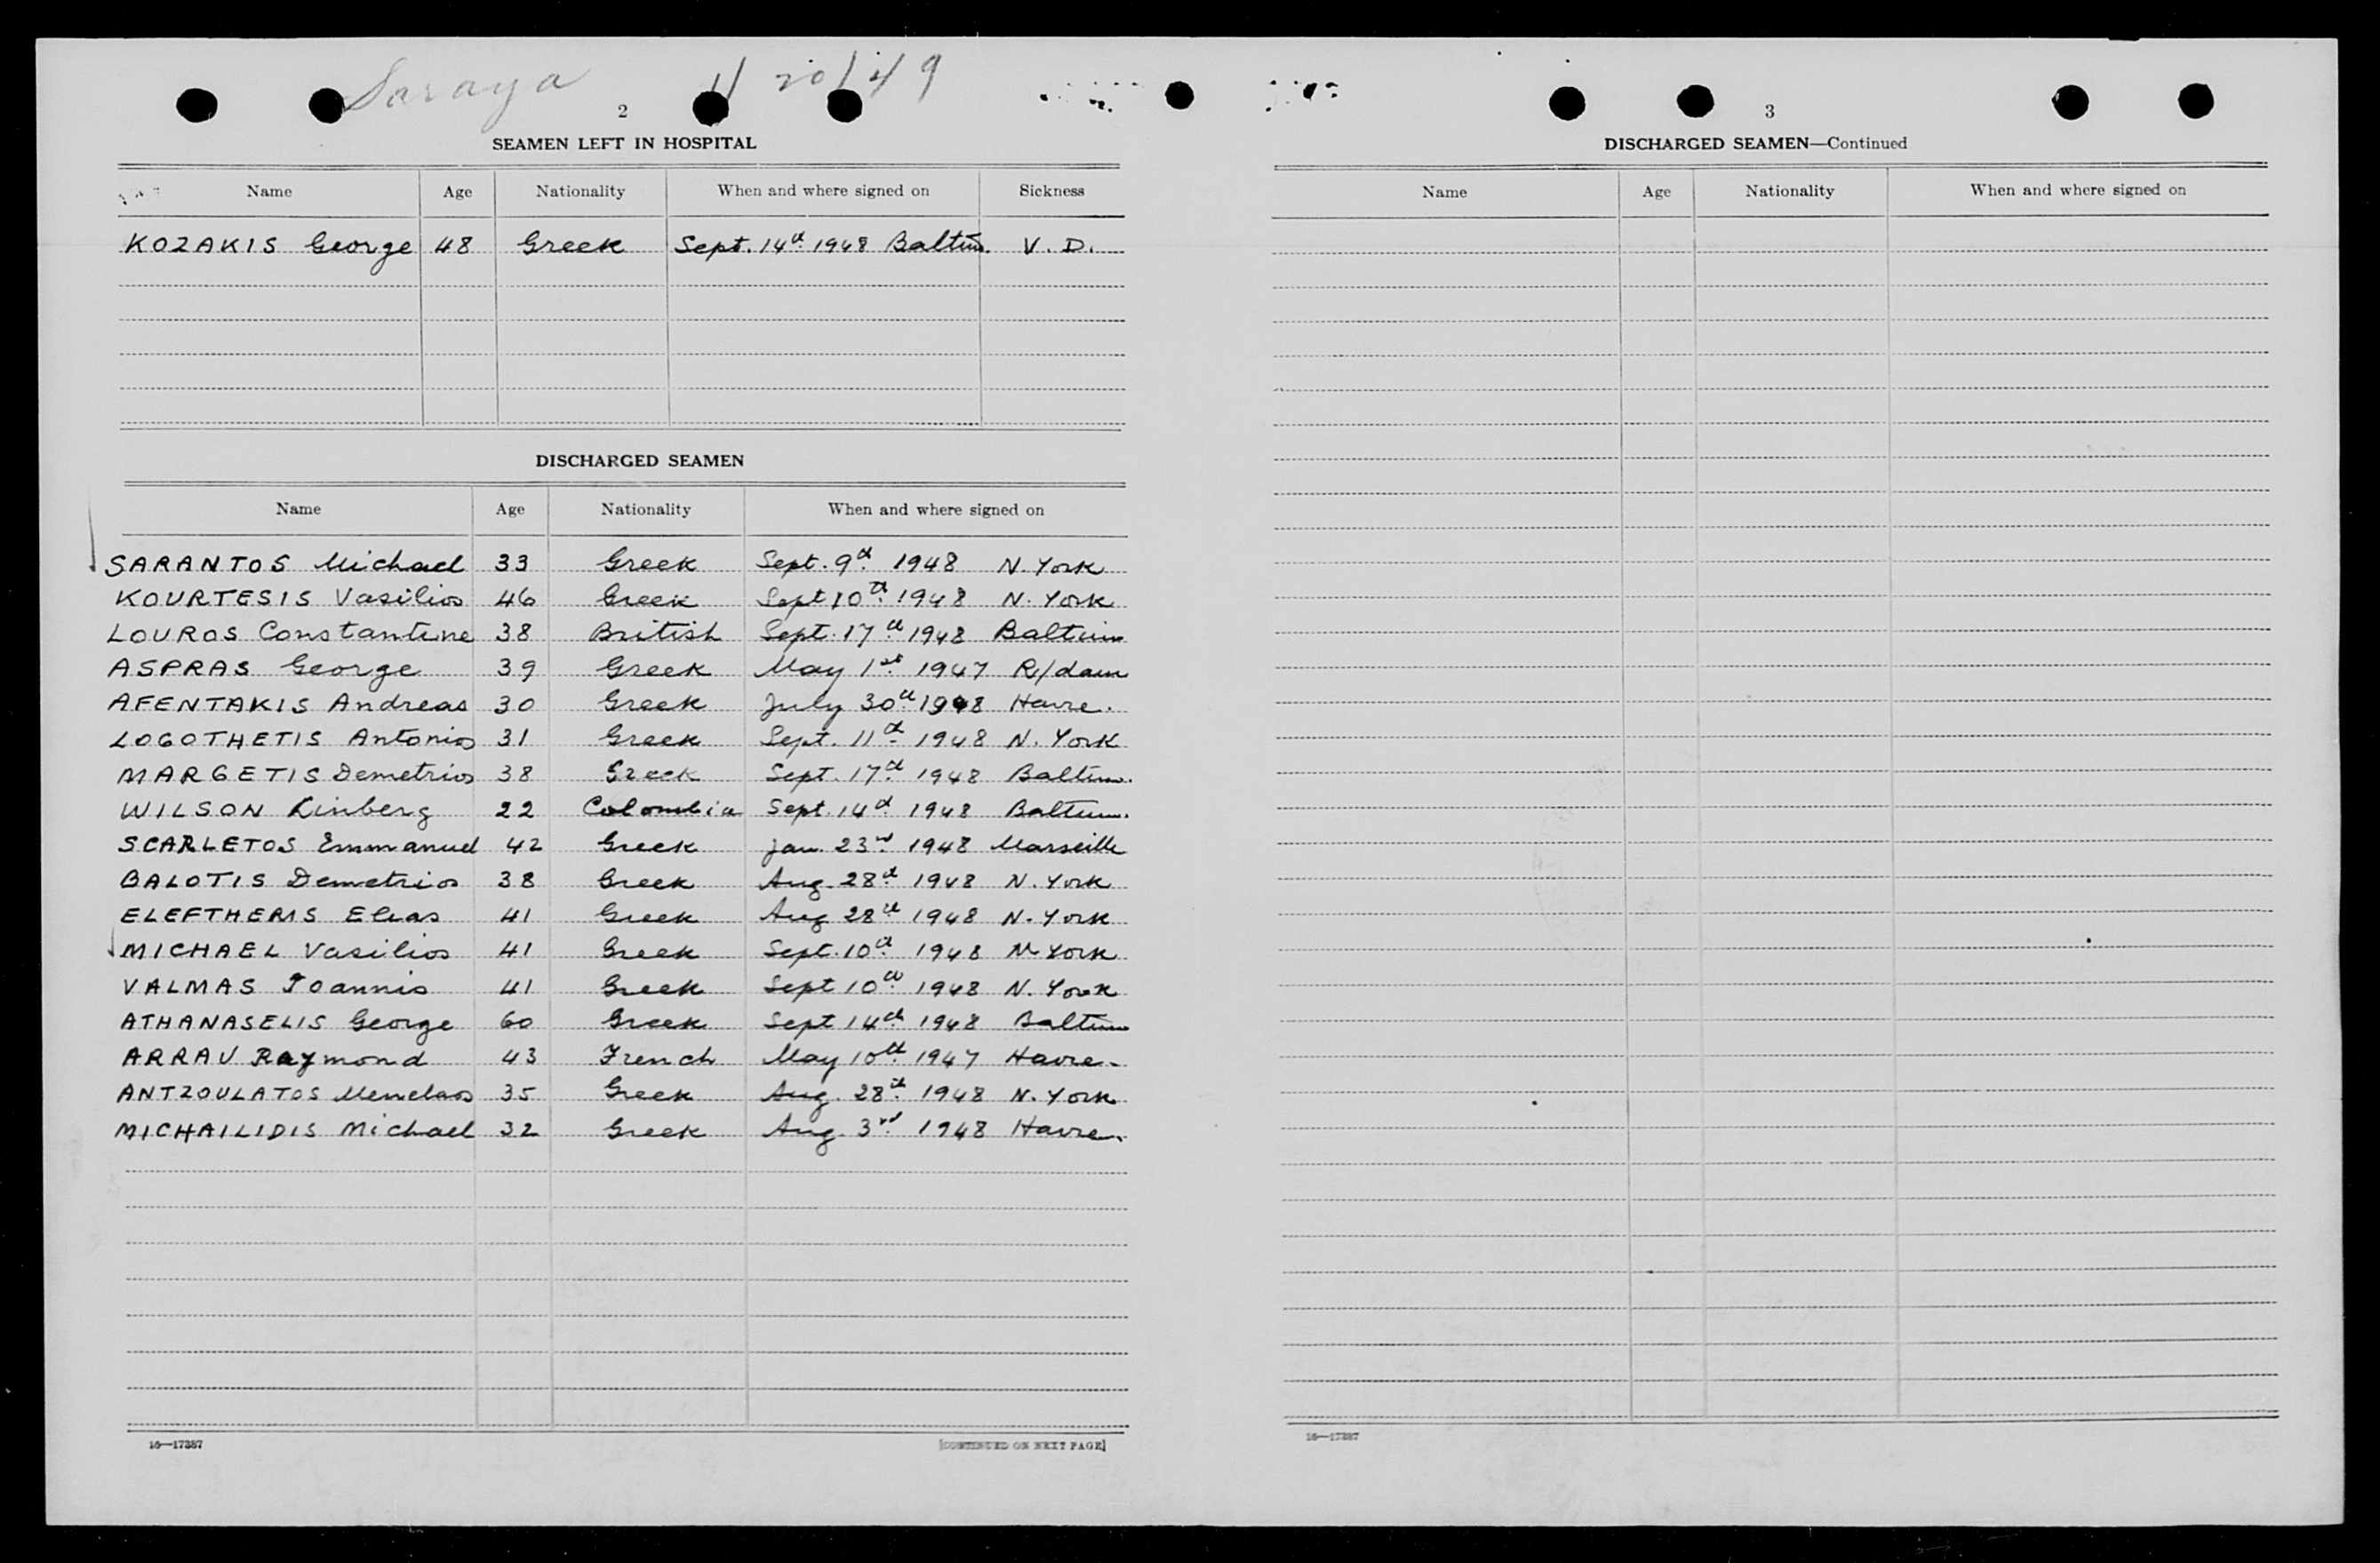 Saraya 1/20/49
2
SEAMEN LEFT IN HOSPITAL
Name Age Nationality When and where signed on Sickness
KOZAKIS George 48 Greek Sept. 14th 1948 Baltim. V. D.
DISCHARGED SEAMEN
Name Age Nationality When and where signed on
SARANTOS Michael 33 Greek Sept. 9th 1948 N. York
KOURTESIS Vasilios 46 Greek Sept 10th 1948 N. York
LOUROS Constantine 38 British Sept. 17th 1948 Baltim
ASPRAS George 39 Greek May 1st 1947 R/dam
AFENTAKIS Andreas 30 Greek July 30th 1948 Havre.
LOGOTHETIS Antonios 31 Greek Sept. 11th 1948 N. York
MARGETIS Demetrios 38 Greek Sept. 17th 1948 Baltim.
WILSON Linberg 22 Colombia Sept. 14th 1948 Baltim.
SCARLETOS Emmanuel 42 Greek Jan. 23rd 1948 Marseille
BALOTIS Demetrios 38 Greek Aug. 28th 1948 N. York
ELEFTHERIS Elias 41 Greek Aug 28th 1948 N. York
MICHAEL Vasilios 41 Greek Sept. 10th 1948 N York
VALMAS Ioannis 41 Greek Sept 10th 1948 N. York
ATHANASELIS George 60 Greek Sept 14th 1948 Baltim
ARRAU Raymond 43 French May 10th 1947 Havre-
ANTZOULATOS Menelaos 35 Greek Aug. 28th 1948 N. York
MICHAILIDIS Michael 32 Greek Aug. 3rd 1948 Havre.
16—17387
[CONTINUED ON NEXT PAGE]
3
DISCHARGED SEAMEN—Continued
Name Age Nationality When and where signed on
16—17387